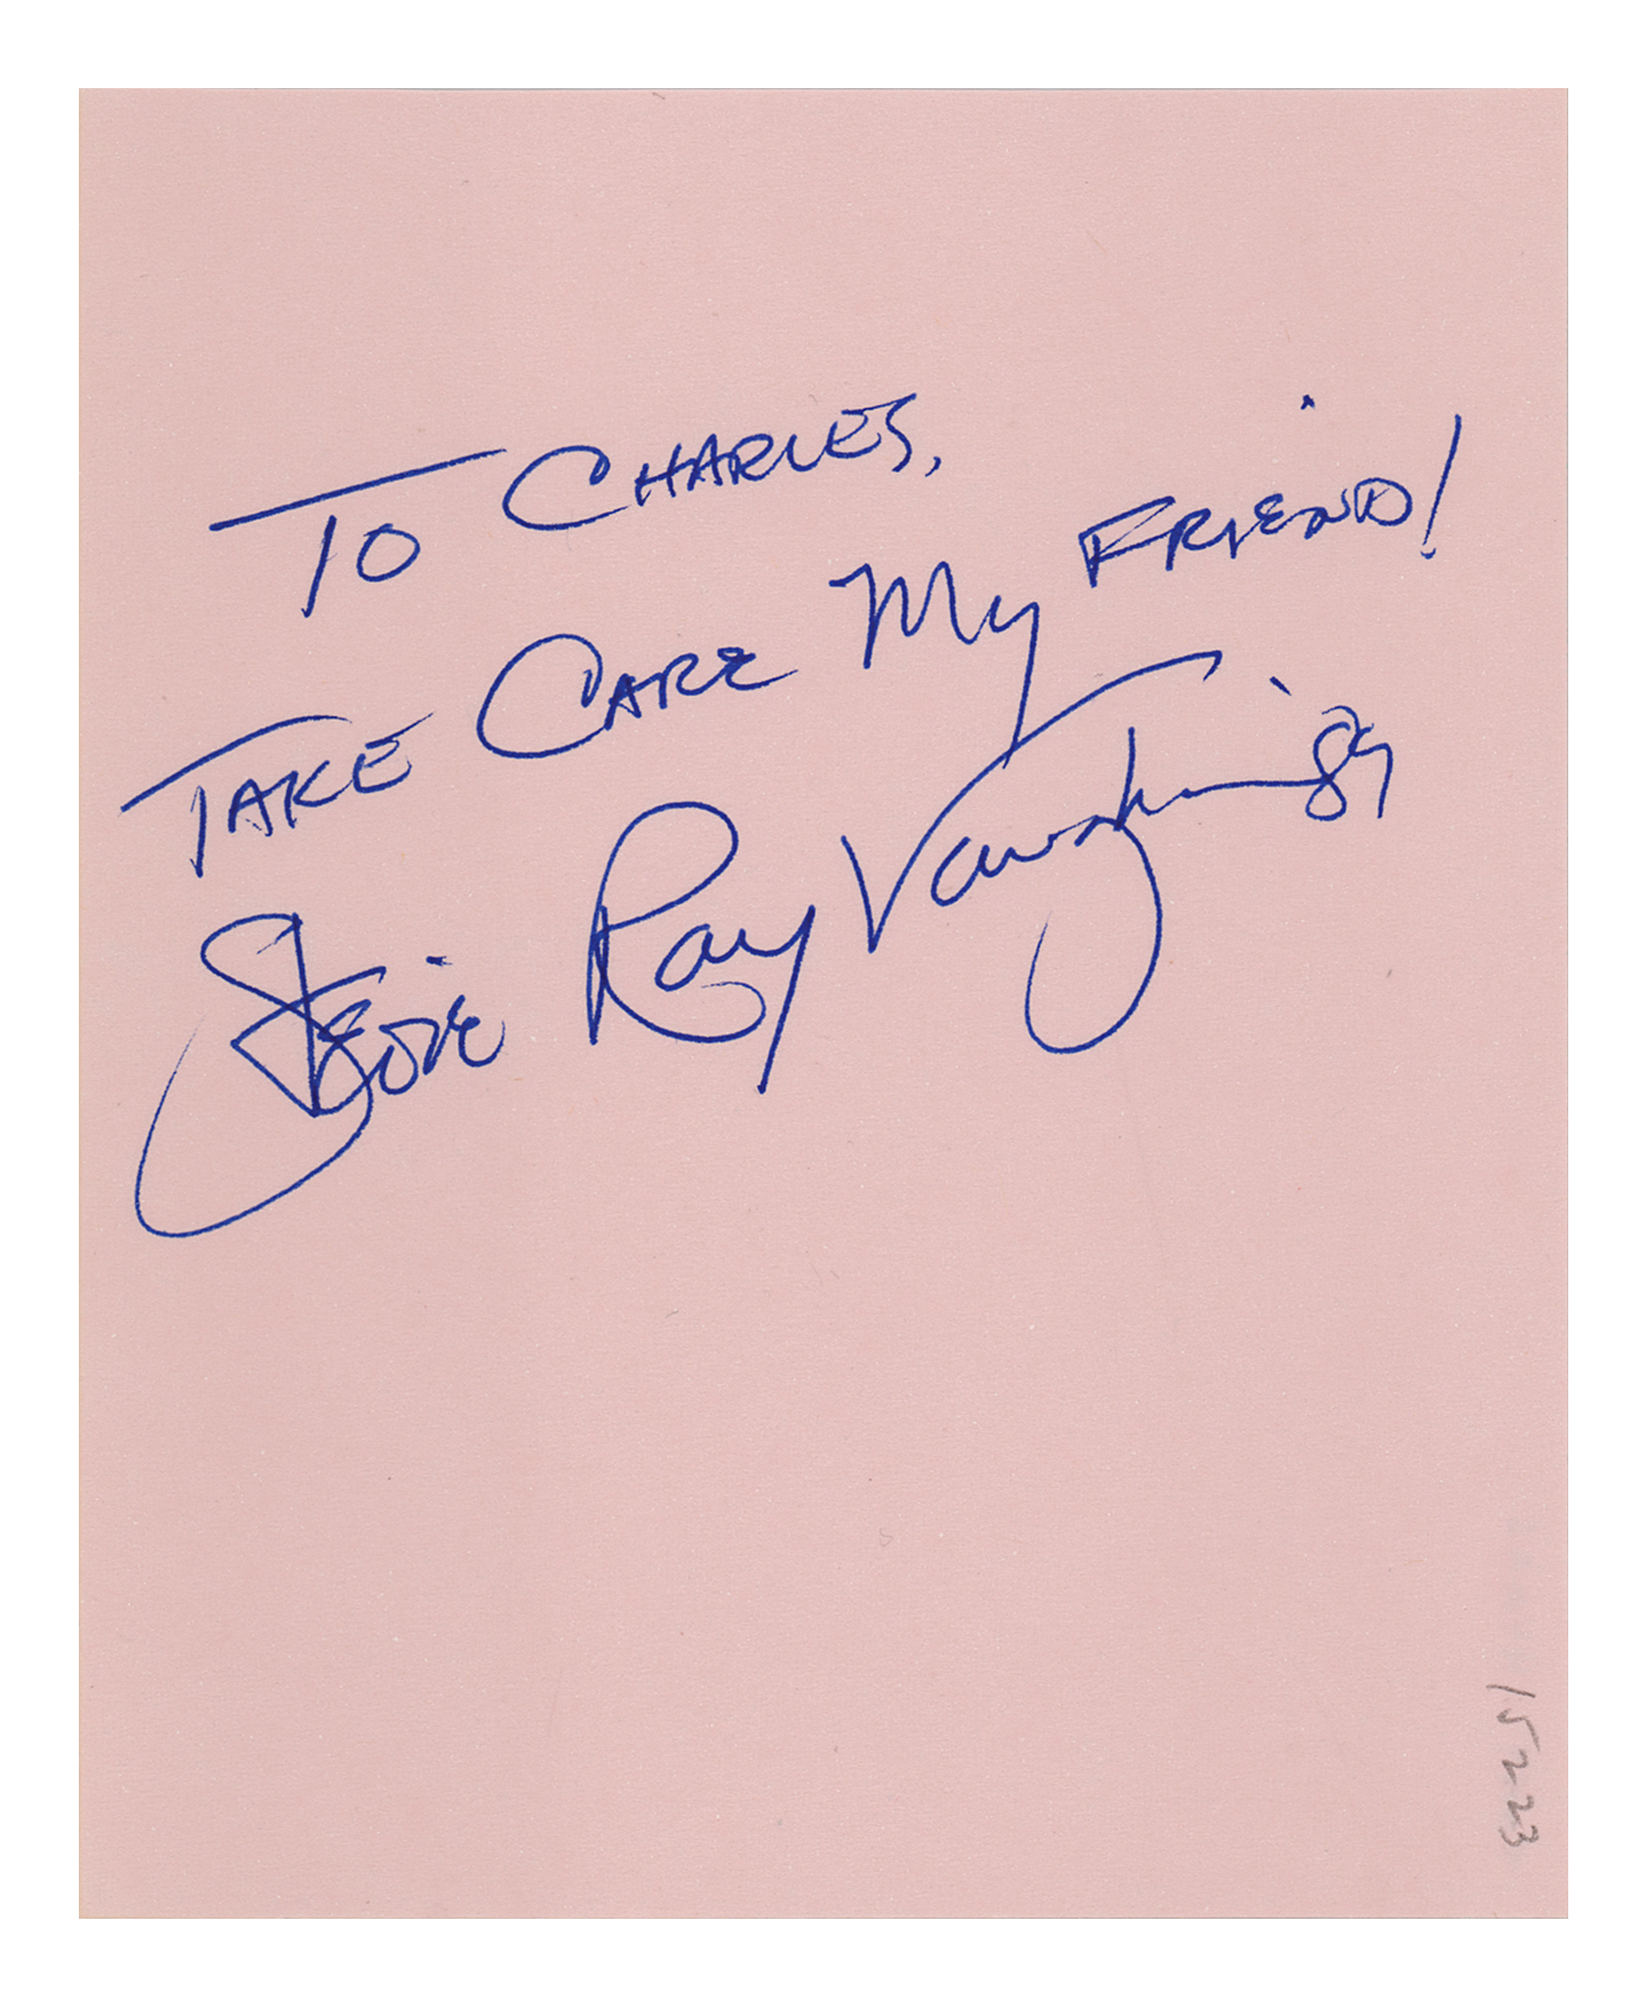 To CHARLES,
TAKE CARE My FRIEND!
Stevie Ray Vaughan '89